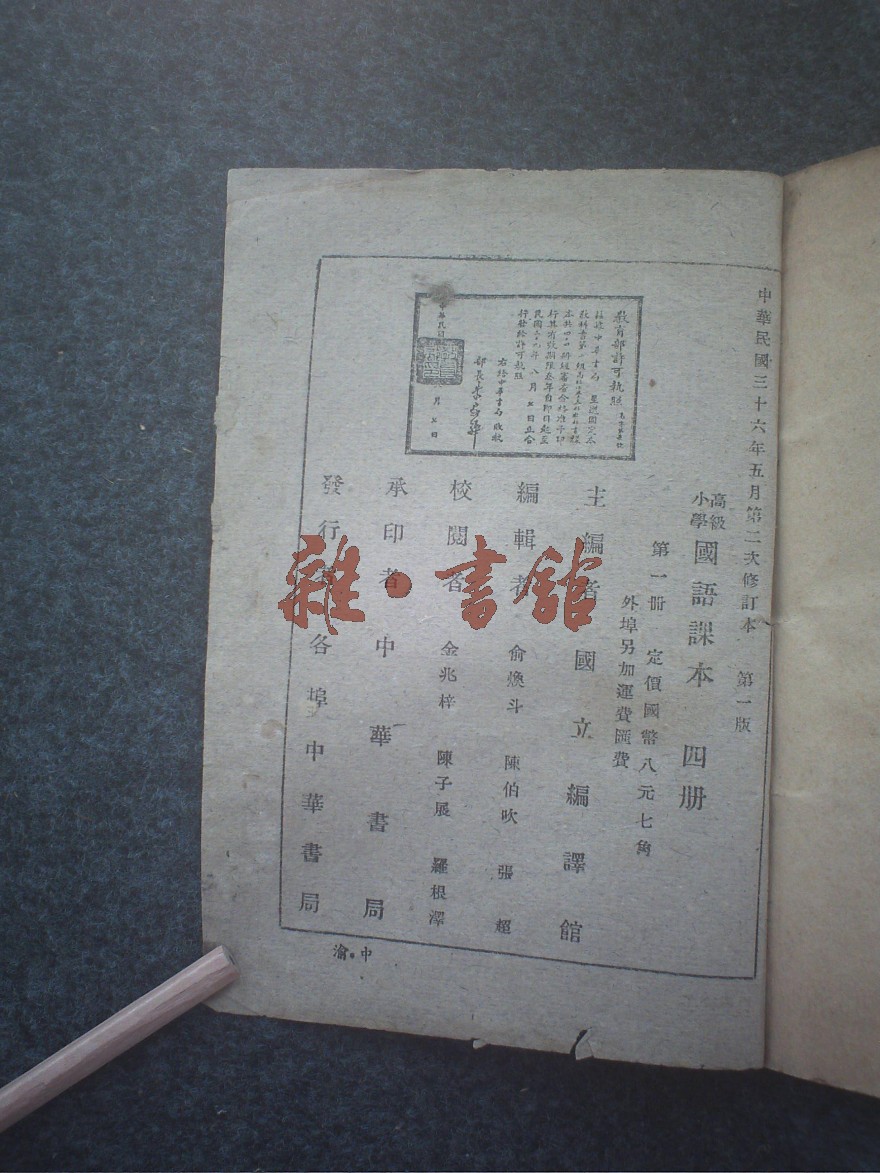 中華民國三十六年五月第二次修訂本 第一版
高級小學國語課本 四册
第一册 定價國幣八元七角
外埠另加運費匯費
教育部許可執照
行發給許可執照
右給中華書局收執
主編者 國立編譯館
編輯者 俞煥斗 陳伯吹 張超
校閱者 金兆梓 陳子展 羅根澤
承印者 中華書局
發行者 各埠中華書局
渝•中
雜•書館